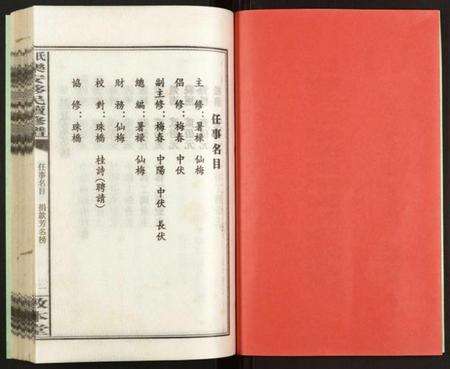 任事名目
主修：署樑 仙梅
倡修：梅春 中伏
副主修：梅春 中陽 中伏 長伏
總編：署樑 仙梅
財務：仙梅
校對：珠橋 桂詩(聘請)
協修：珠橋
任事名目 捐款芳名榜
敦本堂